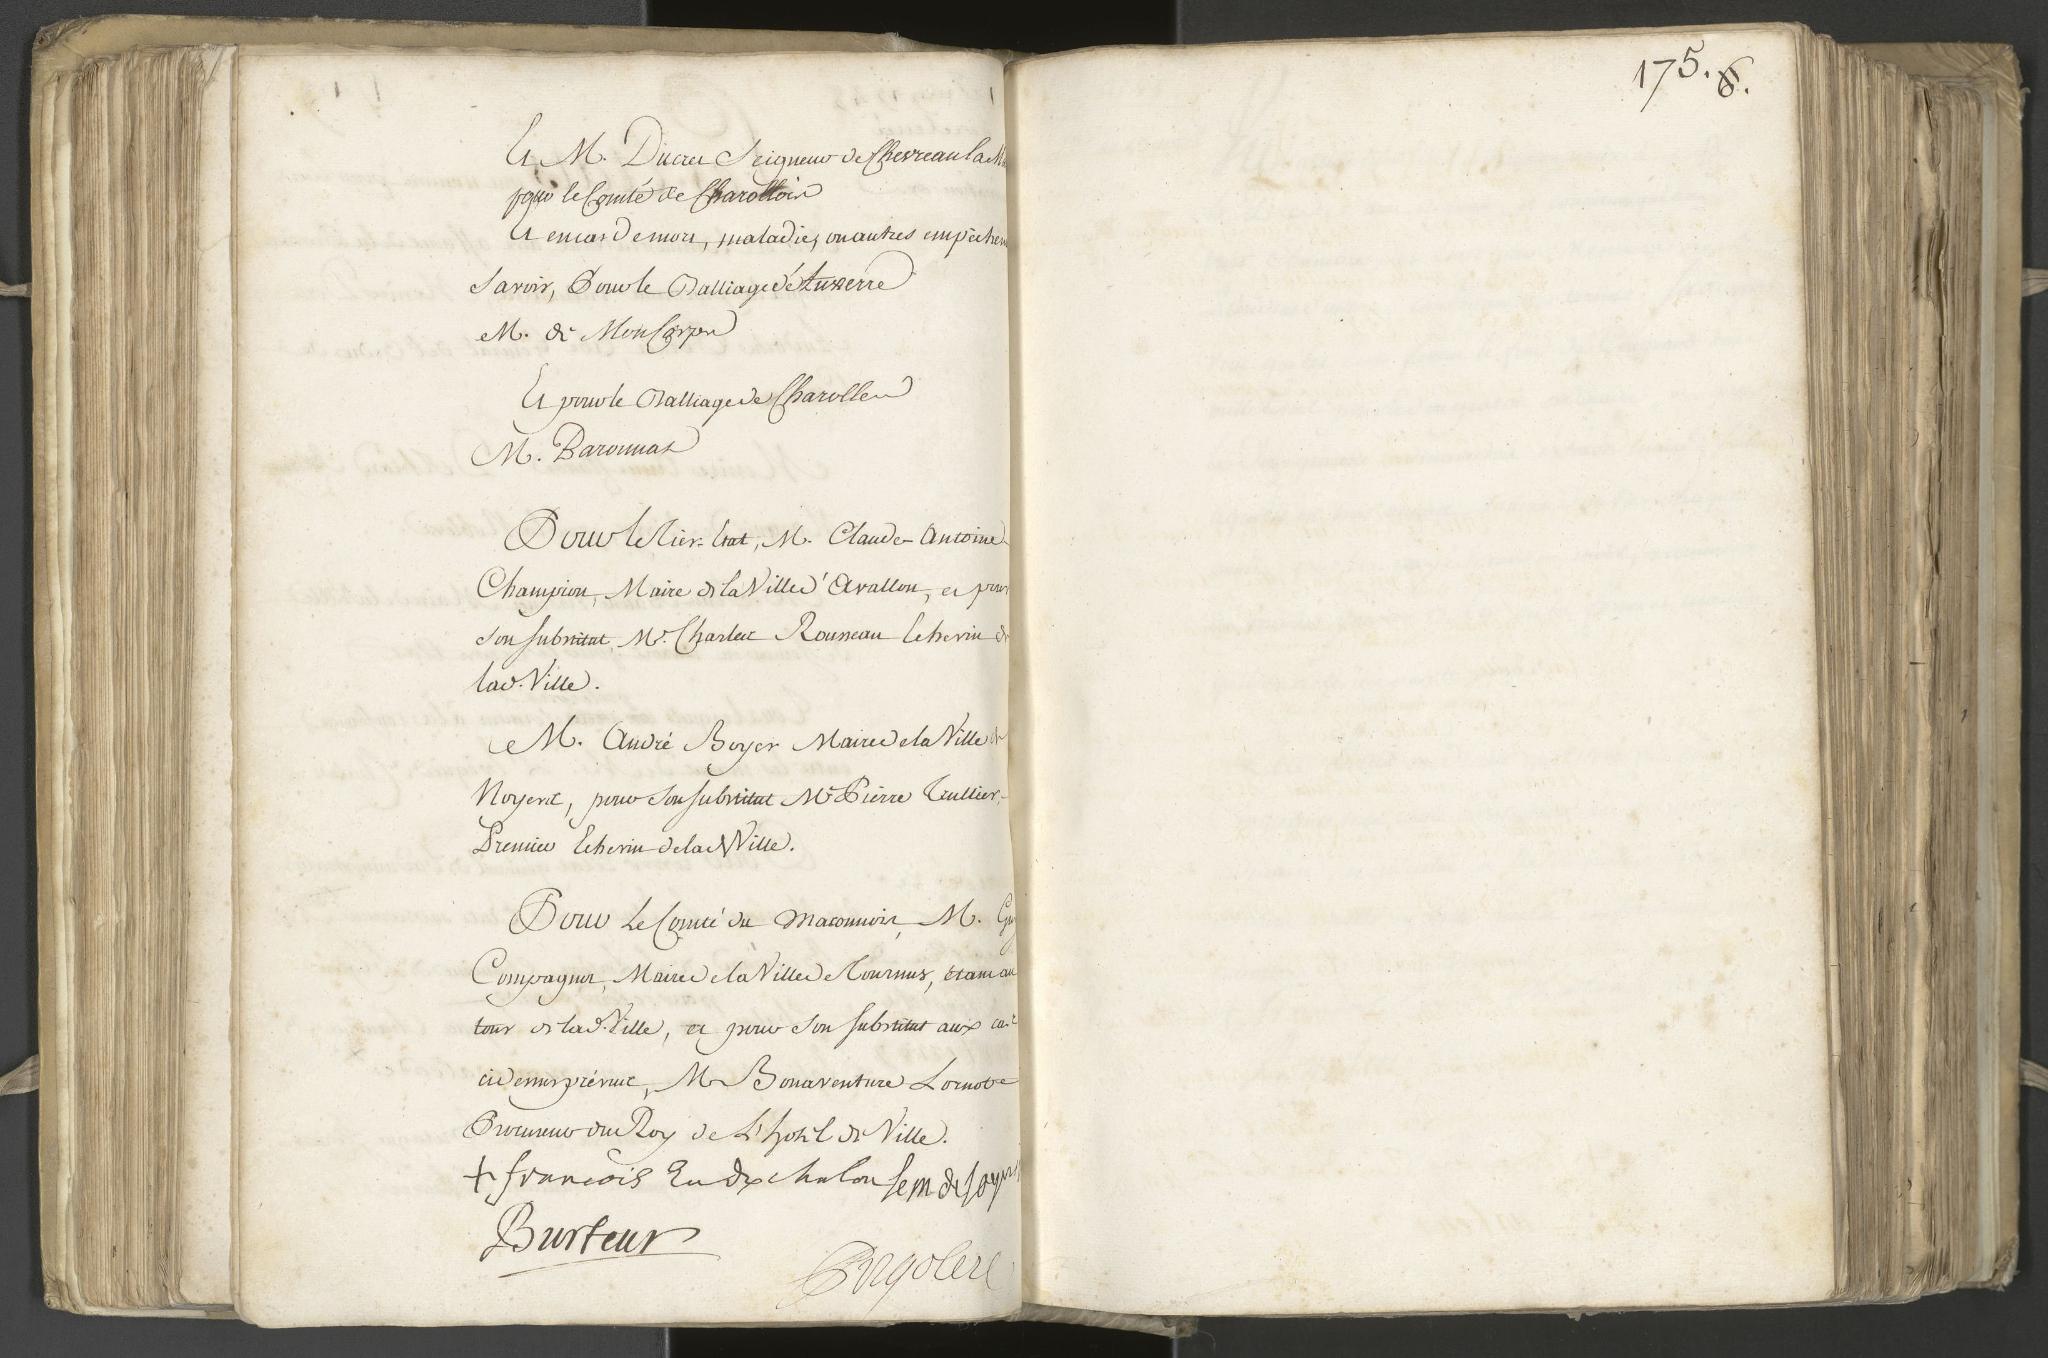 Et M. Ducret Seigneur de Chevreau la
pour le Comté de Charollois
Et en cas de mort, maladie, ou autres empêchem
Savoir, Pour le Balliage d'Auxerre
M. de Moncorps
Et pour le Balliage de Charolles
M. Baronnat
Pour le Tiers Etat, M. Claude Antoine
Champion, Maire de la Ville d'Avallon, et pour
son substitut M. Charles Rousseau Echevin de
lad. Ville.
M. André Boyer Maire de la Ville de
Noyers, pour son substitut Mr Pierre
Premier Echevin de lad Ville.
Pour le Comté du Maconnois, M.
Compagnot, Maire de la Ville de Tournus, étant au
tour de lad. Ville, et pour son substitut aux cas
cidessus prévus, M. Bonaventure Lornot
Procureur du Roy de l'hotel de Ville.
+ françois Eu de chalon
Burteur
175. 6.